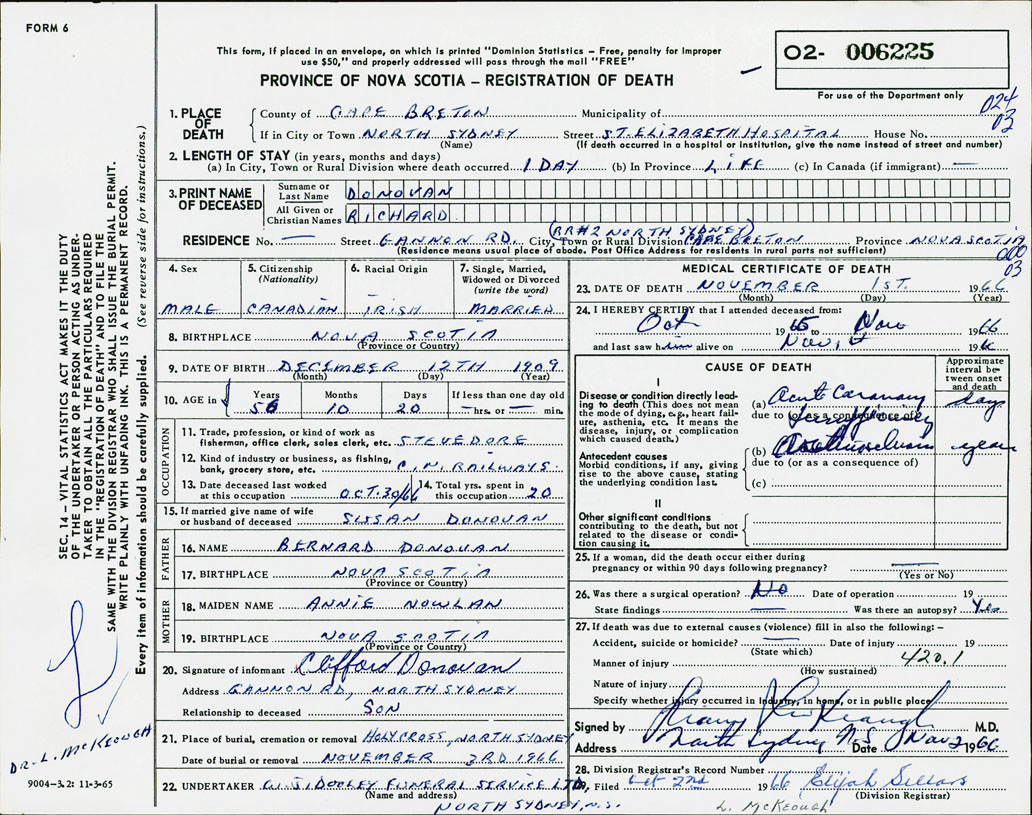 FORM 6
This form, if placed in an envelope, on which is printed "Dominion Statistics – Free, penalty for improper
use $50," and properly addressed will pass through the mail "FREE"
PROVINCE OF NOVA SCOTIA – REGISTRATION OF DEATH
O2- 006225
For use of the Department only
024
03
1. PLACE OF DEATH
County of CAPE BRETON Municipality of
If in City or Town NORTH SYDNEY Street ST. ELIZABETH HOSPITAL House No.
(Name) (If death occurred in a hospital or institution, give the name instead of street and number)
2. LENGTH OF STAY (in years, months and days)
(a) In City, Town or Rural Division where death occurred 1 DAY (b) In Province LIFE (c) In Canada (if immigrant) —
3. PRINT NAME OF DECEASED
Surname or Last Name DONOVAN
All Given or Christian Names RICHARD
(RR#2 NORTH SYDNEY)
RESIDENCE No. — Street GANNON RD. City, Town or Rural Division CAPE BRETON Province NOVA SCOTIA
(Residence means usual place of abode. Post Office Address for residents in rural parts not sufficient)
000
03
4. Sex
MALE
5. Citizenship (Nationality)
CANADIAN
6. Racial Origin
IRISH
7. Single, Married, Widowed or Divorced (write the word)
MARRIED
8. BIRTHPLACE NOVA SCOTIA
(Province or Country)
9. DATE OF BIRTH DECEMBER 12TH 1909
(Month) (Day) (Year)
10. AGE in Years Months Days If less than one day old
56 10 20 — hrs. or — min.
OCCUPATION
11. Trade, profession, or kind of work as
fisherman, office clerk, sales clerk, etc. STEVEDORE
12. Kind of industry or business, as fishing,
bank, grocery store, etc. C.N. RAILWAYS.
13. Date deceased last worked at this occupation OCT. 30/66
14. Total yrs. spent in this occupation 20
15. If married give name of wife
or husband of deceased SUSAN DONOVAN
FATHER
16. NAME BERNARD DONOVAN
17. BIRTHPLACE NOVA SCOTIA
(Province or Country)
MOTHER
18. MAIDEN NAME ANNIE NOWLAN
19. BIRTHPLACE NOVA SCOTIA
(Province or Country)
20. Signature of informant x Clifford Donovan
Address GANNON RD, NORTH SYDNEY
Relationship to deceased SON
21. Place of burial, cremation or removal HOLY CROSS, NORTH SYDNEY
Date of burial or removal NOVEMBER 3RD 1966
22. UNDERTAKER W. J. DOOLEY FUNERAL SERVICE LTD.
(Name and address)
NORTH SYDNEY, N.S.
MEDICAL CERTIFICATE OF DEATH
23. DATE OF DEATH NOVEMBER 1ST. 1966
(Month) (Day) (Year)
24. I HEREBY CERTIFY that I attended deceased from:
Oct 1965 to Nov 1966
and last saw him alive on Nov, 196
CAUSE OF DEATH
Approximate interval between onset and death
I
Disease or condition directly leading to death (This does not mean the mode of dying, e.g., heart failure, asthenia, etc. It means the disease, injury, or complication which caused death.)
(a) Acute Coronary days
due to (or as a consequence of)
Antecedent causes
Morbid conditions, if any, giving rise to the above cause, stating the underlying condition last.
(b) years
due to (or as a consequence of)
(c)
II
Other significant conditions
contributing to the death, but not related to the disease or condition causing it.
25. If a woman, did the death occur either during
pregnancy or within 90 days following pregnancy? —
(Yes or No)
26. Was there a surgical operation? No Date of operation 19
State findings — Was there an autopsy? Yes
27. If death was due to external causes (violence) fill in also the following: –
Accident, suicide or homicide? — Date of injury 19
(State which)
Manner of injury 420.1
(How sustained)
Nature of injury
Specify whether injury occurred in industry, in home, or in public place
Signed by M.D.
Address North Sydney N.S. Date Nov 2 1966
28. Division Registrar's Record Number
29. Filed 2nd 1966 Elijah Sellars
(Division Registrar)
L. McKEOUGH
SEC. 14 – VITAL STATISTICS ACT MAKES IT THE DUTY
OF THE UNDERTAKER OR PERSON ACTING AS UNDER-
TAKER TO OBTAIN ALL THE PARTICULARS REQUIRED
IN THE "REGISTRATION OF DEATH" AND TO FILE THE
SAME WITH THE DIVISION REGISTRAR WHO SHALL ISSUE THE BURIAL PERMIT.
WRITE PLAINLY WITH UNFADING INK. THIS IS A PERMANENT RECORD.
Every item of information should be carefully supplied. (See reverse side for instructions.)
DR. L. McKEOUGH
9004-3.2: 11-3-65